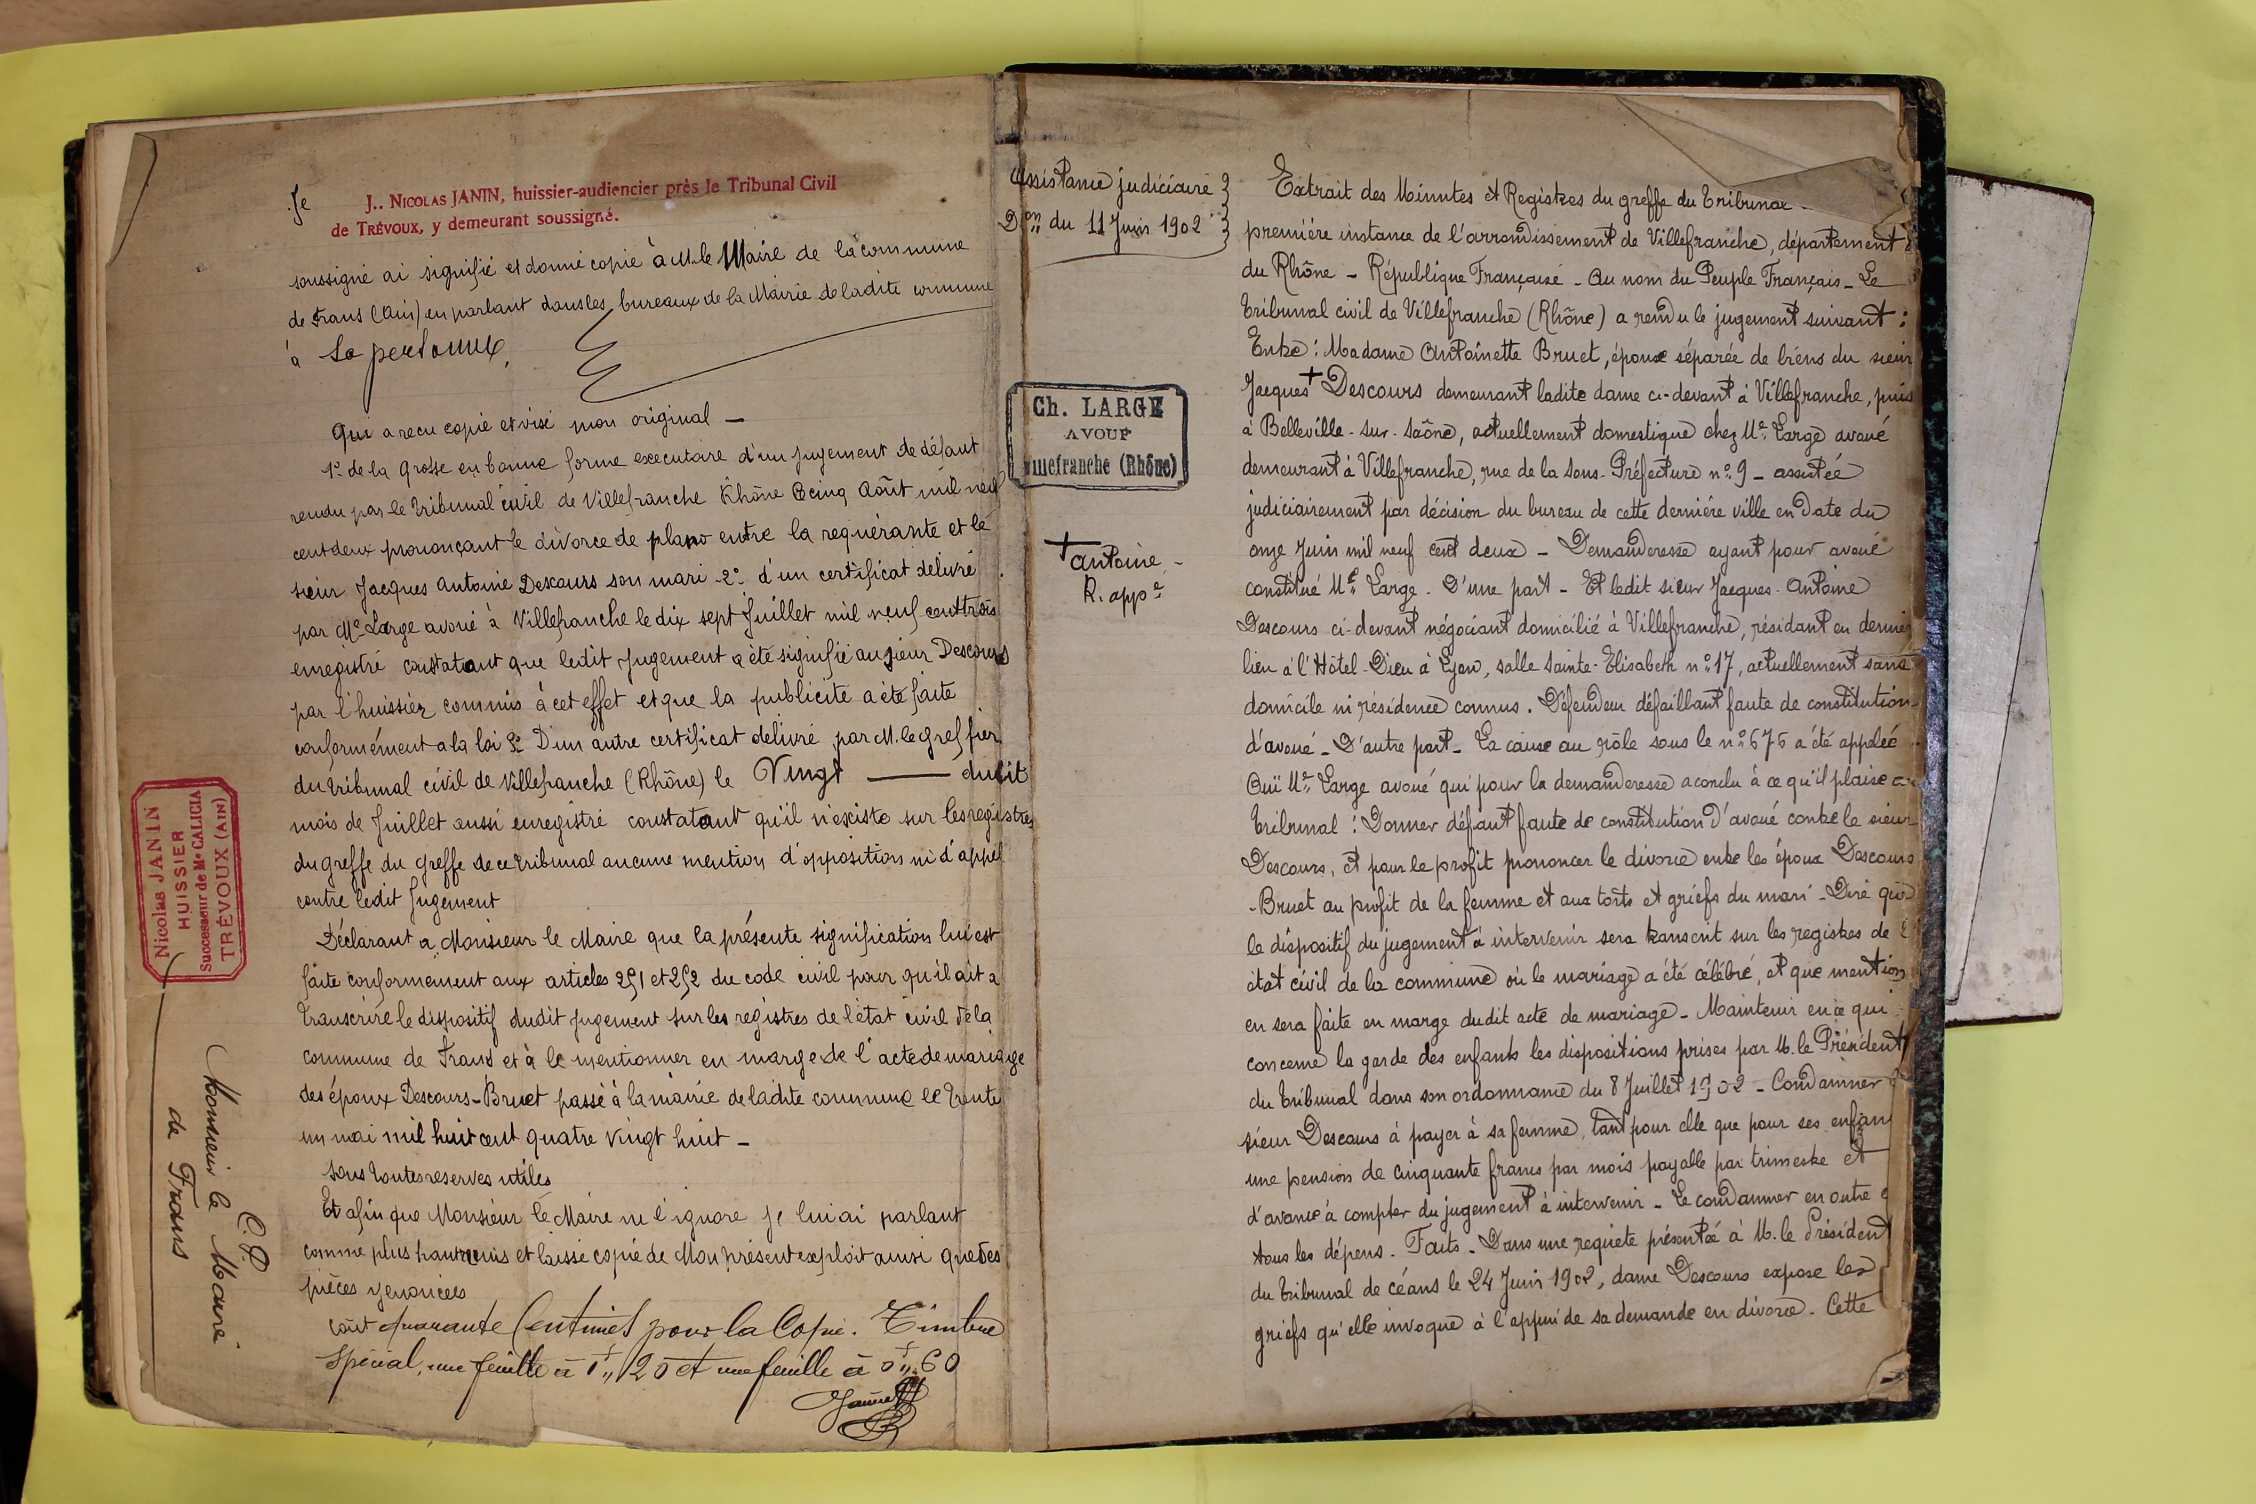 Je J.. NICOLAS JANIN, huissier-audiencier près le Tribunal Civil
de TRÉVOUX, y demeurant soussigné.
soussigné ai signifié et donné copie à M. le Maire de la commune
de Frans (Ain) en parlant dans les bureaux de la Mairie de ladite commune
à Sa personne,
qui a recu copie et visé mon original —
1º de la Grosse en bonne forme executoire d'un jugement de défaut
rendu par le tribunal civil de Villefranche Rhône le cinq Août mil neuf
cent deux prononçant le divorce de plano entre la requérante et le
sieur Jacques Antoine Descours son mari 2º d'un certificat délivré
par Me Large avoué à Villefranche le dix sept Juillet mil neuf cent trois
enregistré constatant que ledit Jugement a été signifié au sieur Descours
par l'huissier commis à cet effet et que la publicité a été faite
conformément a la loi 3º D'un autre certificat délivré par M. le Greffier
du tribunal civil de Villefranche (Rhône) le Vingt — dudit
mois de Juillet aussi enregistré constatant qu'il n'existe sur les registres
du greffe du Greffe de ce tribunal aucune mention d'opposition ni d'appel
contre ledit Jugement
Déclarant a Monsieur le Maire que la présente signification lui est
faite conformement aux articles 251 et 252 du code civil pour qu'il ait a
transcrire le dispositif dudit Jugement sur les régistres de l'état civil de la
commune de Frans et à le mentionner en marge de l'acte de mariage
des époux Descours-Bruet passé à la mairie de ladite commune le trente
un mai mil huit cent quatre vingt huit —
sous toutes reserves utiles
Et afin que Monsieur le Maire ne l'ignore je lui ai parlant
comme plus haut remis et laissé copie de Mon présent exploit ainsi que des
pièces yenoncées
coût quarante Centimes pour la Copie. Timbre
Spécial, une feuille à 1f,,20 et une feuille à 0f,,60
Nicolas JANIN
HUISSIER
Successeur de Me CALICIA
TRÉVOUX (AIN)
C.P.
Monsieur le Maire
de Frans
Assistance judiciaire
Don du 11 Juin 1902
Ch. LARGE
AVOUÉ
Villefranche (Rhône)
+ antoine -
R. appé
Extrait des Minutes et Registres du greffe du Tribunal
première instance de l'arrondissement de Villefranche, département
du Rhône - République Française - Au nom du Peuple Français - Le
Tribunal civil de Villefranche (Rhône) a rendu le jugement suivant :
Entre : Madame Antoinette Bruet, épouse séparée de biens du sieur
Jacques + Descours demeurant ladite dame ci-devant à Villefranche, puis
à Belleville-sur-Saône, actuellement domestique chez Me Large avoué
demeurant à Villefranche, rue de la Sous-Préfecture nº 9 - assistée
judiciairement par décision du bureau de cette dernière ville en date du
onze Juin mil neuf cent deux - Demanderesse ayant pour avoué
constitué Me Large - D'une part - Et ledit sieur Jacques-Antoine
Descours ci-devant négociant domicilié à Villefranche, résidant en dernier
lieu à l'Hôtel-Dieu à Lyon, salle Sainte-Elisabeth nº 17, actuellement sans
domicile ni résidence connus. Défendeur défaillant faute de constitution
d'avoué - D'autre part - La cause au rôle sous le nº 676 a été appelée
Ouï Me Large avoué qui pour la demanderesse a conclu à ce qu'il plaise au
Tribunal : Donner défaut faute de constitution d'avoué contre le sieur
Descours, et pour le profit prononcer le divorce entre les époux Descours
-Bruet au profit de la femme et aux torts et griefs du mari - Dire que
le dispositif du jugement à intervenir sera transcrit sur les registres de
état civil de la commune où le mariage a été célébré, et que mention
en sera faite en marge dudit acte de mariage - Maintenir en ce qui
concerne la garde des enfants les dispositions prises par M. le Président
du Tribunal dans son ordonnance du 8 Juillet 1902 - Condamner
sieur Descours à payer à sa femme, tant pour elle que pour ses enfan
une pension de cinquante francs par mois payable par trimestre et
d'avance à compter du jugement à intervenir - Le condamner en outre
tous les dépens - Faits - Dans une requête présentée à M. le Président
du Tribunal de céans le 24 Juin 1902, dame Descours expose les
griefs qu'elle invoque à l'appui de sa demande en divorce - Cette